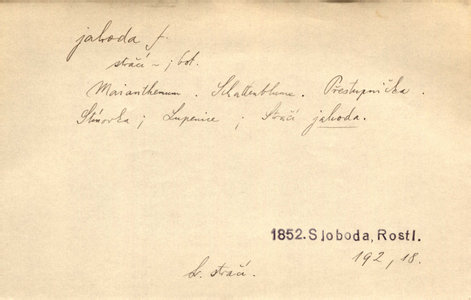 jahoda f.
stračí ~ ; bot.
Maianthemum. Schattenblume. Přestupnička.
Stínovka ; Lupenice ; Stračí jahoda.
1852. Sloboda, Rostl.
192, 18.
stračí.